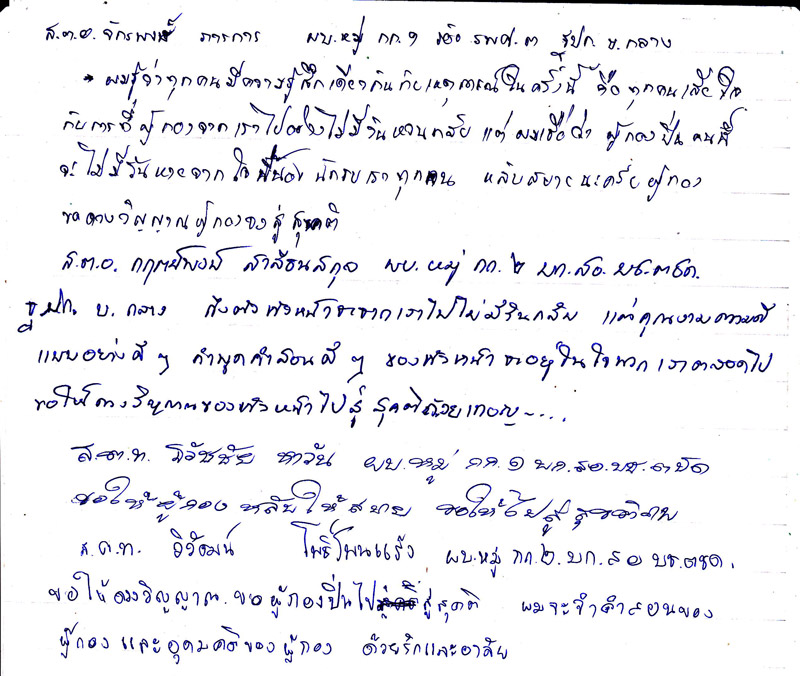 ส.ต.อ. จักรพงษ์ ภารการ ผบ.หมู่ กก.๑ รพศ.๓ ชปก. บ.กลาง
ผมรู้ว่าทุกคนมีความรู้สึกเดียวกันกับเหตุการณ์ในครั้งนี้ คือ ทุกคนเสียใจ
กับการที่ ผู้กองจากเราไปอย่างไม่มีวันหวนกลับ แต่ ผมเชื่อว่า ผู้กองปิ่น คนนี้
จะไม่มีวันหายจากใจพี่น้อง นักรบเราทุกคน หลับสบายนะครับผู้กอง
ขอดวงวิญญาณผู้กองจงสู่สุคติ
ส.ต.อ. กฤตย์พงษ์ สาลีธนสกุล ผบ.หมู่ กก.๒ บก.สอ. บช.ตชด.
ชปก. บ.กลาง ถึงแม้หัวหน้าจะจากเราไปไม่มีวันกลับ แต่คุณงามความดี
แบบอย่างดีๆ คำพูดคำสอนดีๆ ของหัวหน้า จะอยู่ในใจพวกเราตลอดไป
ขอให้ดวงวิญญาณของหัวหน้าไปสู่สุคติด้วยเทอญ....
ส.ต.ท. วิรัชชัย หาวัน ผบ.หมู่ กก.๑ บก.สอ.บช.ตชด
ขอให้ผู้กอง หลับให้สบาย ขอให้ไปสู่สุข
ส.ต.ท. วิวัฒน์ โพธิ์โพนแร้ง ผบ.หมู่ กก.๒. บก.สอ บช.ตชด.
ขอให้ดวงวิญญาณ.ขอ ผู้กองปิ่นไปสู่สุคติ ผมจะจำคำสอนของ
ผู้กอง และอุดมคติของผู้กอง ด้วยรักและอาลัย